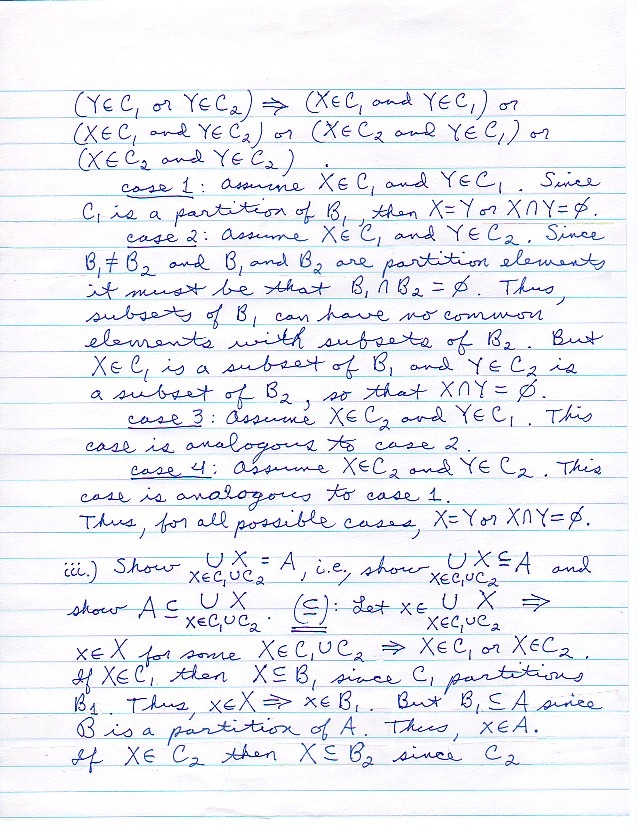 (Y∈C₁ or Y∈C₂) ⇒ (X∈C₁ and Y∈C₁) or
(X∈C₁ and Y∈C₂) or (X∈C₂ and Y∈C₁) or
(X∈C₂ and Y∈C₂).
case 1: Assume X∈C₁ and Y∈C₁. Since
C₁ is a partition of B₁, then X=Y or X∩Y=∅.
case 2: Assume X∈C₁ and Y∈C₂. Since
B₁≠B₂ and B₁ and B₂ are partition elements
it must be that B₁∩B₂=∅. Thus,
subsets of B₁ can have no common
elements with subsets of B₂. But
X∈C₁ is a subset of B₁ and Y∈C₂ is
a subset of B₂, so that X∩Y=∅.
case 3: Assume X∈C₂ and Y∈C₁. This
case is analogous to case 2.
case 4: Assume X∈C₂ and Y∈C₂. This
case is analogous to case 1.
Thus, for all possible cases, X=Y or X∩Y=∅.
iii.) Show ∪ X = A, i.e., show ∪ X ⊆ A and
X∈C₁∪C₂ X∈C₁∪C₂
show A ⊆ ∪ X. (⊆): Let x∈ ∪ X ⇒
X∈C₁∪C₂ X∈C₁∪C₂
x∈X for some X∈C₁∪C₂ ⇒ X∈C₁ or X∈C₂.
If X∈C₁ then X⊆B₁ since C₁ partitions
B₁. Thus, x∈X ⇒ x∈B₁. But B₁⊆A since
B is a partition of A. Thus, x∈A.
If X∈C₂ then X⊆B₂ since C₂